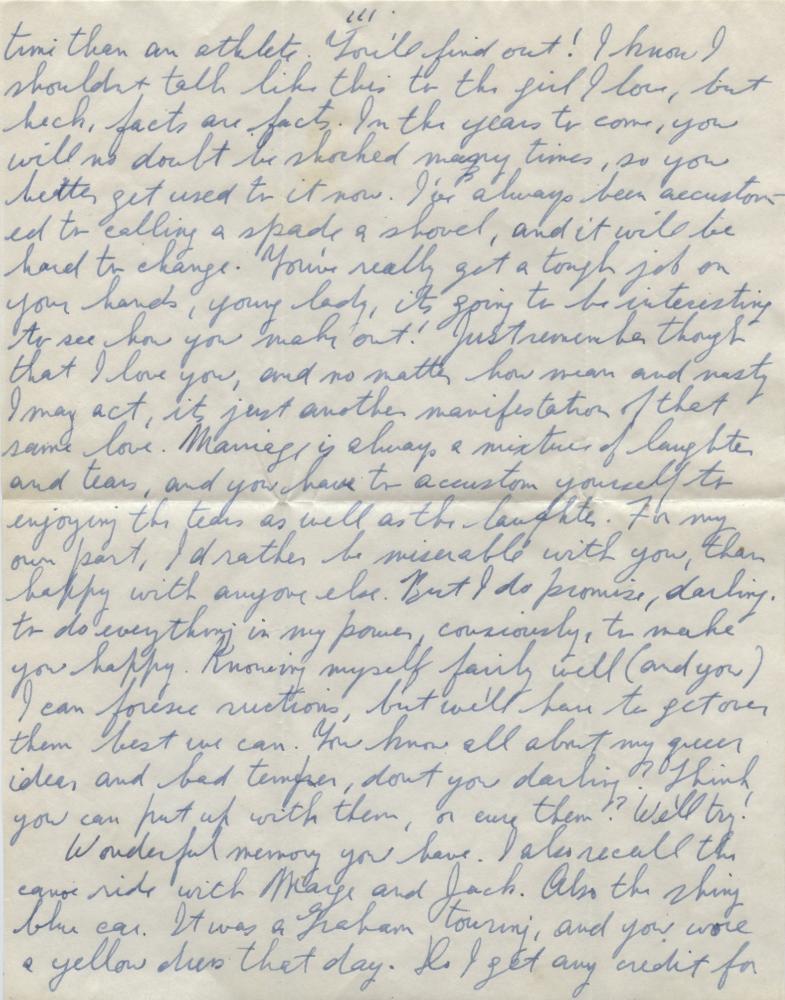 111.
time than an athlete. You'll find out! I know I
shouldn't talk like this to the girl I love, but
heck, facts are facts. In the years to come, you
will no doubt be shocked many times, so you
better get used to it now. I've always been accustom-
ed to calling a spade a shovel, and it will be
hard to change. You've really got a tough job on
your hands, young lady, its going to be interesting
to see how you make out! Just remember though
that I love you, and no matter how mean and nasty
I may act, its just another manifestation of that
same love. Marriage is always a mixture of laughter
and tears, and you have to accustom yourself to
enjoying the tears as well as the laughter. For my
own part, I'd rather be miserable with you, than
happy with anyone else. But I do promise, darling.
to do everything in my power, consciously, to make
you happy. Knowing myself fairly well (and you)
I can foresee ructions, but we'll have to get over
them best we can. You know all about my queer
ideas and bad temper, dont you darling? Think
you can put up with them, or cure them? We'll try!
Wonderful memory you have. I also recall the
canoe ride with Marge and Jack. Also the shiny
blue car. It was a Graham touring, and you wore
a yellow dress that day. Do I get any credit for